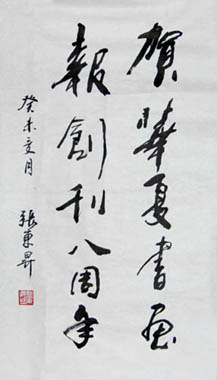 賀華夏書画
報創刊八周年
癸未立月
張東昇